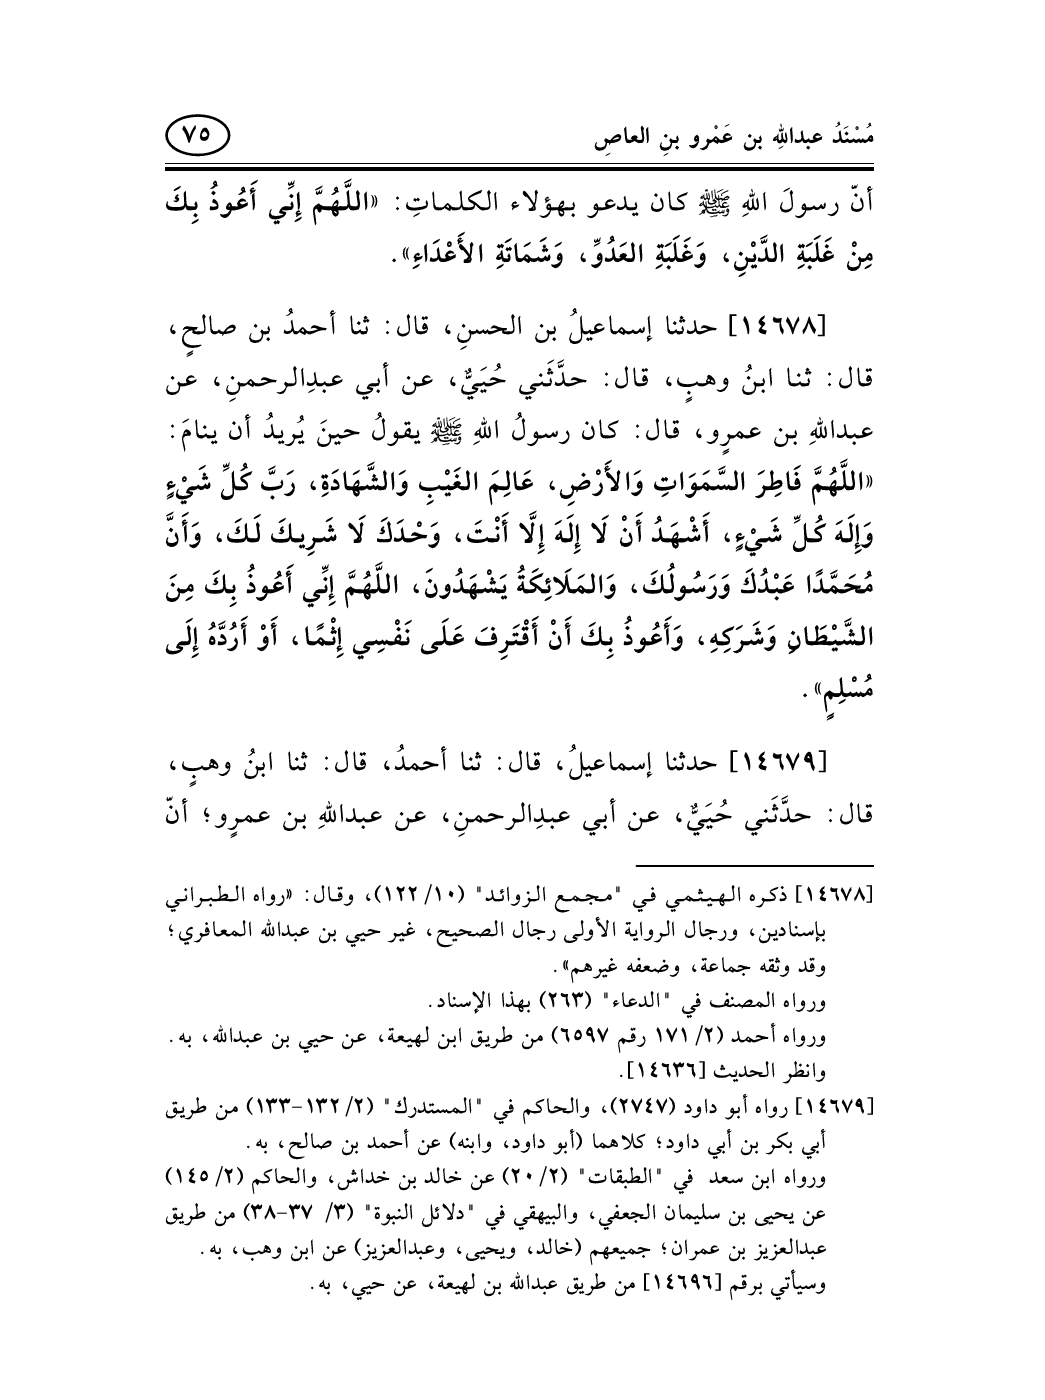 مُسْنَدُ عبدالله بن عَمْرو بنِ العاصِ
٧٥
أنّ رسولَ اللهِ ﷺ كان يدعو بهؤلاء الكلماتِ: «اللَّهُمَّ إِنِّي أَعُوذُ بِكَ
مِنْ غَلَبَةِ الدَّيْنِ، وَغَلَبَةِ العَدُوِّ، وَشَمَاتَةِ الأَعْدَاءِ».
[١٤٦٧٨] حدثنا إسماعيلُ بن الحسنِ، قال: ثنا أحمدُ بن صالحٍ،
قال: ثنا ابنُ وهبٍ، قال: حدَّثَني حُيَيٌّ، عن أبي عبدِالرحمنِ، عن
عبداللهِ بن عمرٍو، قال: كان رسولُ اللهِ ﷺ يقولُ حينَ يُريدُ أن ينامَ:
«اللَّهُمَّ فَاطِرَ السَّمَوَاتِ وَالأَرْضِ، عَالِمَ الغَيْبِ وَالشَّهَادَةِ، رَبَّ كُلِّ شَيْءٍ
وَإِلَهَ كُلِّ شَيْءٍ، أَشْهَدُ أَنْ لَا إِلَهَ إِلَّا أَنْتَ، وَحْدَكَ لَا شَرِيكَ لَكَ، وَأَنَّ
مُحَمَّدًا عَبْدُكَ وَرَسُولُكَ، وَالمَلَائِكَةُ يَشْهَدُونَ، اللَّهُمَّ إِنِّي أَعُوذُ بِكَ مِنَ
الشَّيْطَانِ وَشَرَكِهِ، وَأَعُوذُ بِكَ أَنْ أَقْتَرِفَ عَلَى نَفْسِي إِثْمًا، أَوْ أَرُدَّهُ إِلَى
مُسْلِمٍ».
[١٤٦٧٩] حدثنا إسماعيلُ، قال: ثنا أحمدُ، قال: ثنا ابنُ وهبٍ،
قال: حدَّثَني حُيَيٌّ، عن أبي عبدِالرحمنِ، عن عبداللهِ بن عمرٍو؛ أنّ
[١٤٦٧٨] ذكره الهيثمي في "مجمع الزوائد" (١٠/ ١٢٢)، وقال: «رواه الطبراني
بإسنادين، ورجال الرواية الأولى رجال الصحيح، غير حيي بن عبدالله المعافري؛
وقد وثقه جماعة، وضعفه غيرهم».
ورواه المصنف في "الدعاء" (٢٦٣) بهذا الإسناد.
ورواه أحمد (٢/ ١٧١ رقم ٦٥٩٧) من طريق ابن لهيعة، عن حيي بن عبدالله، به.
وانظر الحديث [١٤٦٣٦].
[١٤٦٧٩] رواه أبو داود (٢٧٤٧)، والحاكم في "المستدرك" (٢/ ١٣٢-١٣٣) من طريق
أبي بكر بن أبي داود؛ كلاهما (أبو داود، وابنه) عن أحمد بن صالح، به.
ورواه ابن سعد في "الطبقات" (٢/ ٢٠) عن خالد بن خداش، والحاكم (٢/ ١٤٥)
عن يحيى بن سليمان الجعفي، والبيهقي في "دلائل النبوة" (٣/ ٣٧-٣٨) من طريق
عبدالعزيز بن عمران؛ جميعهم (خالد، ويحيى، وعبدالعزيز) عن ابن وهب، به.
وسيأتي برقم [١٤٦٩٦] من طريق عبدالله بن لهيعة، عن حيي، به.